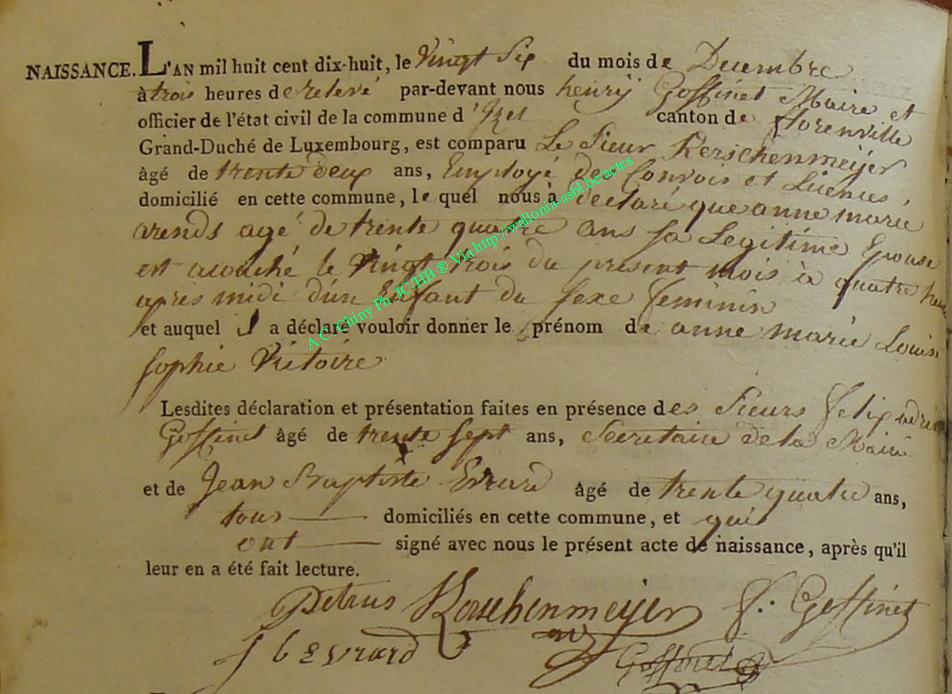 NAISSANCE. L'AN mil huit cent dix-huit, le Vingt Six du mois de Decembre
à trois heures de relevé par-devant nous henry Goffinet Maire et
officier de l'état civil de la commune d'Izel canton de florenville
Grand-Duché de Luxembourg, est comparu Le Sieur Kerschenmeijer
âgé de trente deux ans, Employé des Convois et Licences
domicilié en cette commune, le quel nous à declaré que anne marie
arends agé de trente quatre ans sa Legitime Epouse
est acouché le Vingt trois du present mois à quatre heures
apres midi d'un Enfant du sexe feminin
et auquel il a déclaré vouloir donner le prénom de anne marie Louise
sophie Victoire
Lesdites déclaration et présentation faites en présence des Sieurs felix adrien
Goffinet âgé de trente sept ans, Secretaire de la Mairie
et de Jean Baptiste Evrard âgé de trente quatre ans,
tous domiciliés en cette commune, et qui
ont signé avec nous le présent acte de naissance, après qu'il
leur en a été fait lecture.
Petrus Kerschenmeijer f. Goffinet
J b Evrard Goffinet
A.C. Chiny Ph JC/HB ® Via http://wallonia-asbl.be/actes